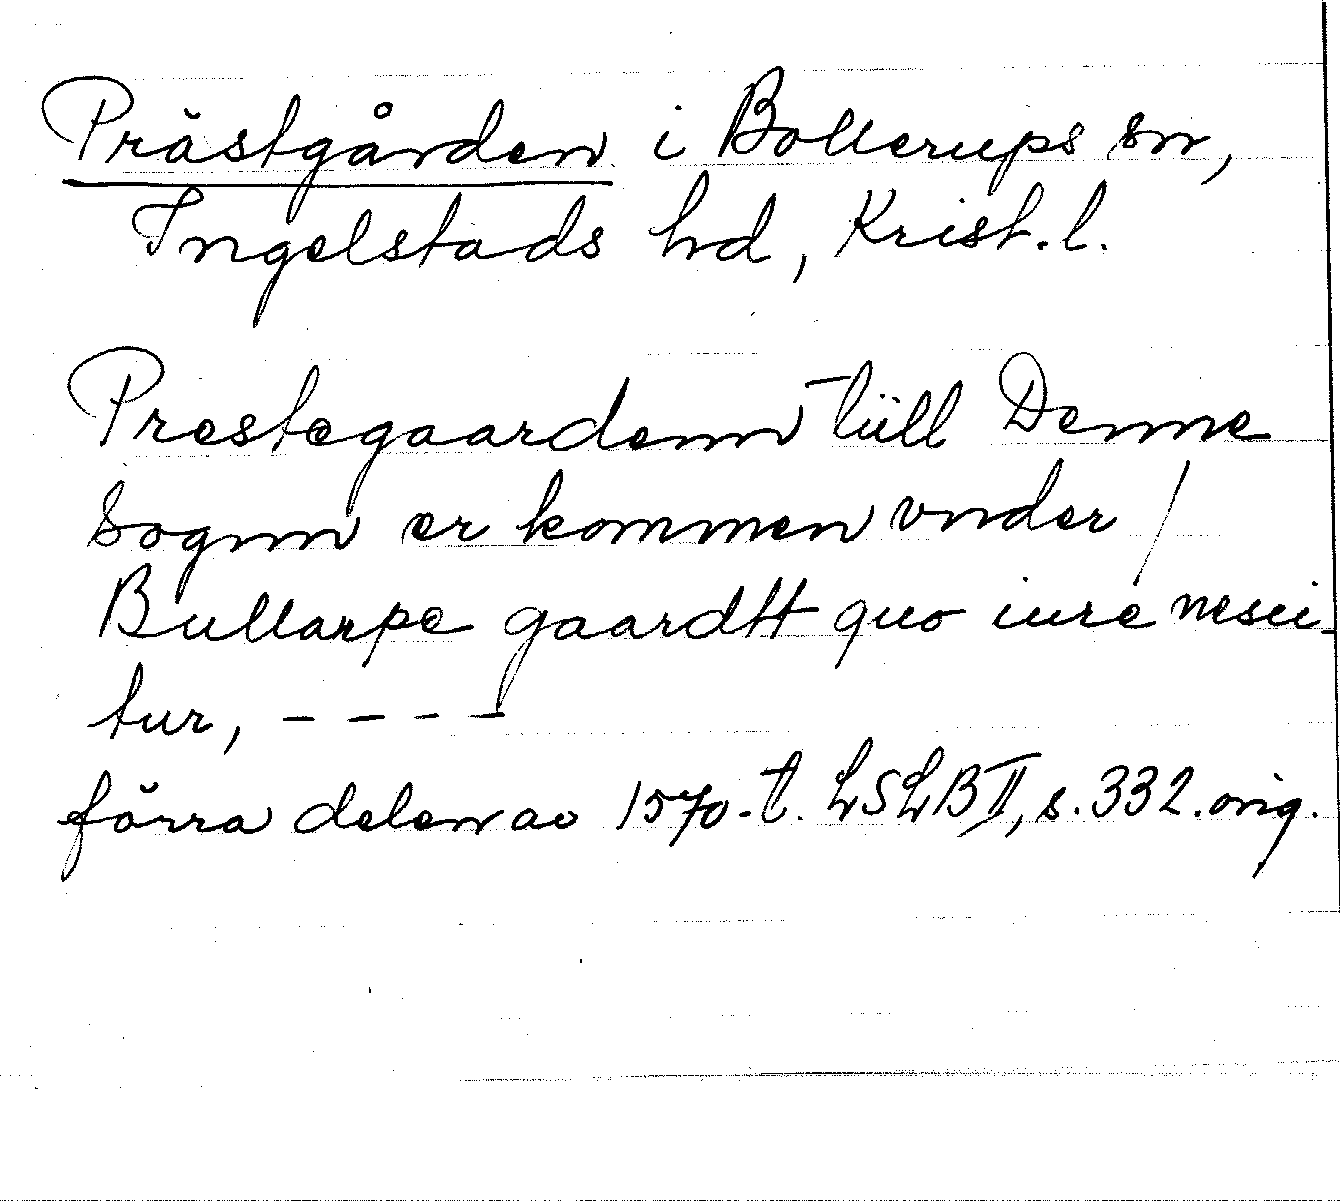 Prästgården i Bollerups sn,
Ingelstads hd, Krist. l.
Prestegaardenn tiill Denne
sognn er kommen vnder /
Bullarpe gaardtt quo iure nesci-
tur, - - - -
förra delen av 1570-t. LSLB II, s. 332. orig.